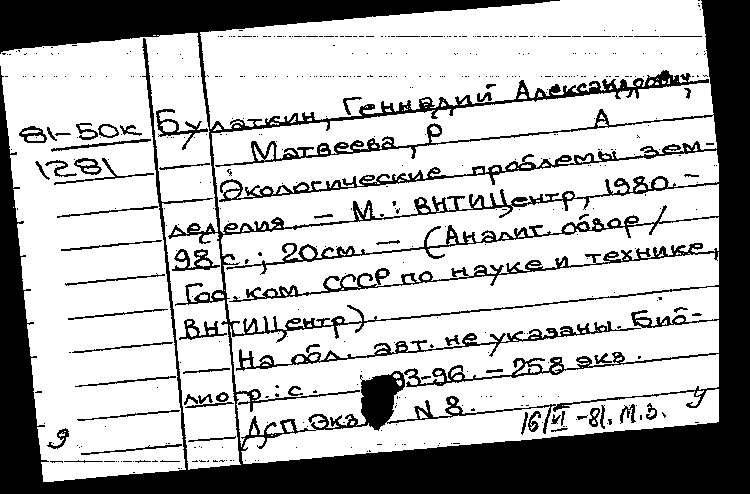 81-50к
1281
Булаткин, Геннадий Александрович,
Матвеева, Р А
Экологические проблемы зем-
леделия. — М.: ВНТИЦентр, 1980. —
98 с.; 20 см. — (Аналит. обзор /
Гос. ком. СССР по науке и технике,
ВНТИЦентр).
На обл. авт. не указаны. Биб-
лиогр.: с. 93-96. — 258 экз.
Дсп. Экз. N 8.
16/VI -81. М.З. У
9